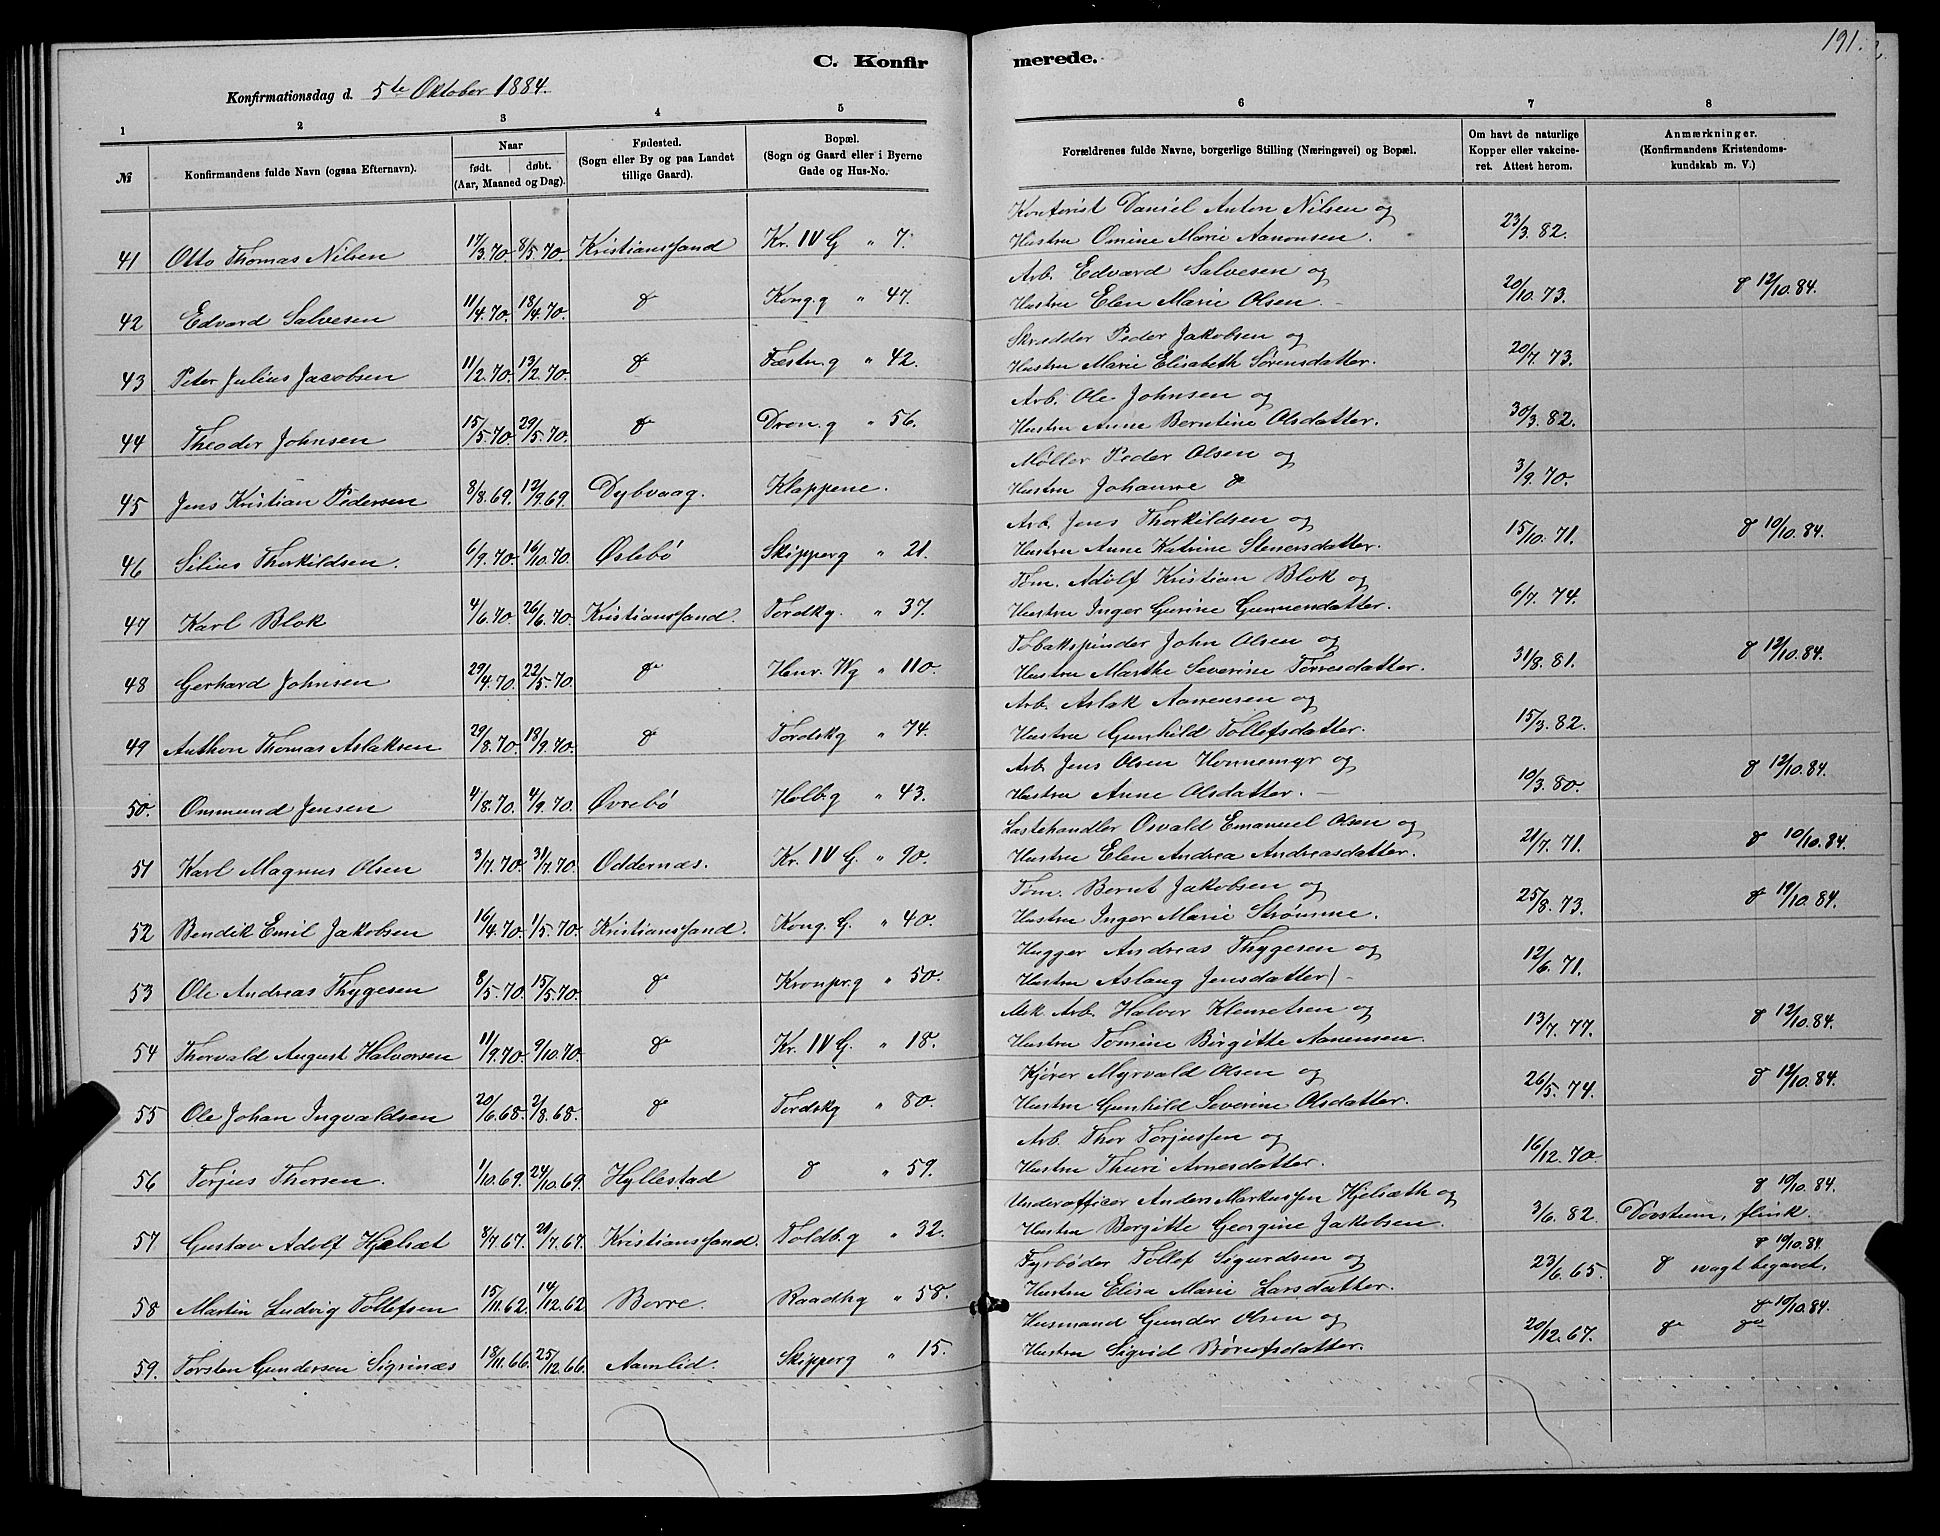 191.
C. Konfirmerede.
Konfirmationsdag d. 5te Oktober 1884.
1 2 3 4 5 6 7 8
№
Konfirmandens fulde Navn (ogsaa Efternavn).
Naar
født. døbt.
(Aar, Maaned og Dag).
Fødested.
(Sogn eller By og paa Landet
tillige Gaard).
Bopæl.
(Sogn og Gaard eller i Byerne
Gade og Hus-No.
Forældrenes fulde Navne, borgerlige Stilling (Næringsvei) og Bopæl.
Om havt de naturlige
Kopper eller vakcine-
ret. Attest herom.
Anmærkninger.
(Konfirmandens Kristendoms-
kundskab m. V.)
Kontorist Daniel Anton Nilsen og
41 Otto Thomas Nilsen 17/3.70. 8/5.70. Kristianssand Kr. IV G " 7. Hustru Omine Marie Aanonsen. 23/3.82.
Arb. Edvard Salvesen og
42 Edvard Salvesen 11/4.70. 18/4.70. d Kong.g " 47. Hustru Elen Marie Olsen. 20/10.73. d 12/10.84.
Skrædder Peder Jakobsen og
43 Peter Julius Jacobsen 11/2.70. 13/2.70. d Fæstn.g " 42. Hustru Marie Elisabeth Sørensdatter. 20/7.73.
Arb. Ole Johnsen og
44 Theodor Johnsen 15/5.70 29/5.70. d Dron.g " 56. Hustru Anne Berntine Olsdatter. 30/3.82.
Møller Peder Olsen og
45 Jens Kristian Pedersen 8/8.69. 12/9.69. Dybvaag. Klappene. Hustru Johanne d 3/9.70.
Arb. Jens Thorkildsen og
46 Silius Thorkildsen. 6/9.70. 16/10.70. Øslebø Skipperg " 21. Hustru Anne Katrine Stenersdatter. 15/10.71. d 10/10.84.
Tøm. Adolf Kristian Blok og
47 Karl Blok 4/6.70 26/6.70. Kristianssand. Tordskg. " 37. Hustru Inger Gurine Gunnersdatter. 6/7.74.
Tobakspinder John Olsen og
48 Gerhard Johnsen 29/4.70. 22/5.70. d Henr. Wg " 110. Hustru Marthe Severine Tørresdatter. 31/8.81. d 12/10.84.
Arb. Aslak Aanensen og
49 Anthon Thomas Aslaksen 29/8.70. 13/9.70. d Tordskg " 74. Hustru Gunhild Tollefsdatter. 15/3.82.
Arb. Jens Olsen Honnemyr og
50. Ommund Jensen 4/8.70. 4/9.70. Øvrebø Holb.g " 43. Hustru Anne Olsdatter. 10/3.80. d 12/10.84.
Lastehandler Osvald Emanuel Olsen og
51 Karl Magnus Olsen 3/7.70. 31/7.70. Oddernæs. Kr. IV G. " 90. Hustru Elen Andrea Andreasdatter. 21/7.71. d 10/10.84.
Tøm. Bernt Jakobsen og
52 Bendik Emil Jakobsen 16/4.70. 1/5.70. Kristianssand. Kong. G. " 40. Hustru Inger Marie Strømme. 25/8.73. d 19/10.84.
Hugger Andreas Thygesen og
53 Ole Andreas Thygesen 8/5.70. 15/5.70. d Kronpr.g " 50. Hustru Aslaug Jensdatter 12/6.71.
Mek. Arb. Halvor Klemetsen og
54 Thorvald August Halvorsen 11/9.70. 9/10.70. d Kr. IV G. " 18. Hustru Tomine Birgitte Aanensen. 13/7.77. d 12/10.84.
Kjører Myrvald Olsen og
55 Ole Johan Ingvaldsen 20/6.68. 2/8.68. d Tordskg " 80. Hustru Gunhild Severine Olsdatter. 26/5.74. d 12/10.84.
Arb. Thor Torjussen og
56 Torjus Thorsen. 1/10.69. 24/10.69. Hyllestad d " 59. Hustru Thuri Arnesdatter. 16/12.70.
Underofficer Anders Markussen Hjelsæth og d 19/10.84.
57 Gustav Adolf Hjelsæt 8/7.67. 21/7.67. Kristianssand. Toldb.g " 32. Hustru Borgitte Georgine Jakobsen. 3/6.82. Døvstum, flink.
Fyrbøder Tollef Sigurdsen og d 19/10.84.
58 Martin Ludvig Tollefsen 15/11.62. 14/12.62 Borre. Raadhg " 58. Hustru Elisa Marie Larsdatter. 23/6.65. d svagt begavet.
Husmand Gunder Olsen og d 10/10.84.
59. Torsten Gundersen Sigrinæs 18/11.66. 25/12.66. Aamlid. Skipperg " 15. Hustru Sigrid Børufsdatter. 20/12.67. d do